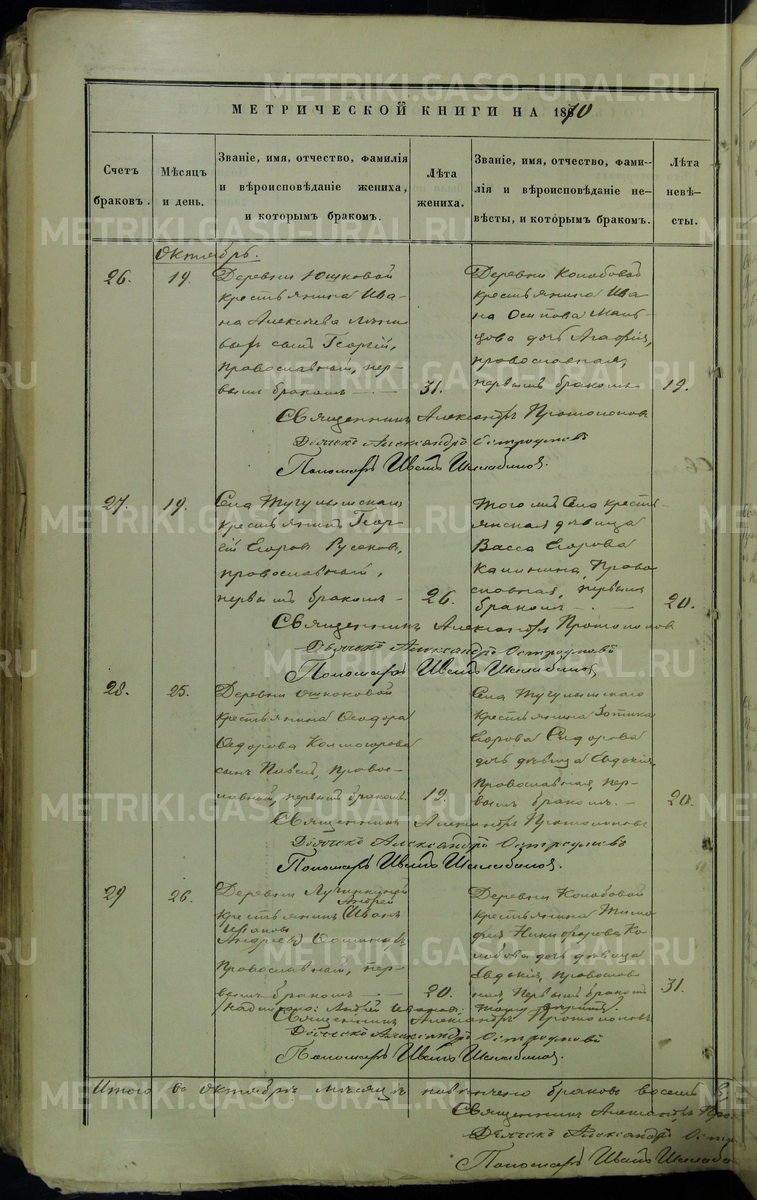 METRIKI.GASO-URAL.RU
МЕТРИЧЕСКОЙ КНИГИ НА 1870
Счетъ браковъ.
Мѣсяцъ и день.
Званіе, имя, отчество, фамилія
и вѣроисповѣданіе жениха,
и которымъ бракомъ.
Лѣта жениха.
Званіе, имя, отчество, фами-
лія и вѣроисповѣданіе не-
вѣсты, и которымъ бракомъ.
Лѣта невѣ-
сты.
Октябрь.
26.
19.
Деревни Юшковой
крестьянина Ива-
на Алексѣева
сынъ Георгій,
православный, пер-
вымъ бракомъ
31.
Деревни Колобовой
крестьянина Ива
на Осипова Маль-
цова дочь Агафія,
православная,
первымъ бракомъ
19.
Священникъ Александръ Протопоповъ
Дьячекъ Александръ Остроумовъ
Пономарь Иванъ Шалабановъ.
27.
19.
Села Тугулымскаго
крестьянинъ Геор-
гій Егоровъ Русаковъ,
православный,
первымъ бракомъ
26.
Того же Села кресть-
янская дѣвица
Васса Егорова
Калинина, Право
славная, первымъ
бракомъ
20.
Священникъ Александръ Протопоповъ
Дьячекъ Александръ Остроумовъ
Пономарь Иванъ Шалабановъ
28.
25.
Деревни
крестьянина Ѳеодора
Ѳедорова Колмогорова
сынъ Павелъ, Право-
славный, первымъ бракомъ.
19.
Села Тугулымскаго
крестьянина Зотика
Егорова Сидорова
дочь дѣвица Евдокія,
Православная, пер-
вымъ бракомъ.
20.
Священникъ Александръ Протопоповъ
Дьячекъ Александръ Остроумовъ
Пономарь Иванъ Шалабановъ.
29
26.
Деревни
Андрей
крестьянинъ Иванъ
Ивановъ
Андреевъ
Православный, пер-
вымъ бракомъ
20.
Деревни Колобовой
крестьянина Тимо
фея Никифорова Ко
лобова дочь дѣвица
Евдокія, Православ
ная, Первымъ бракомъ
31.
Надписано: Андрей Ивановъ
Священникъ Александръ Протопоповъ
Дьячекъ Александръ Остроумовъ
Пономарь Иванъ Шалабановъ.
Итого въ Октябрѣ мѣсяцѣ повѣнчано браковъ восемь
Священникъ Александръ Про
Дьячекъ Александръ Остр
Пономарь Иванъ Шалаба